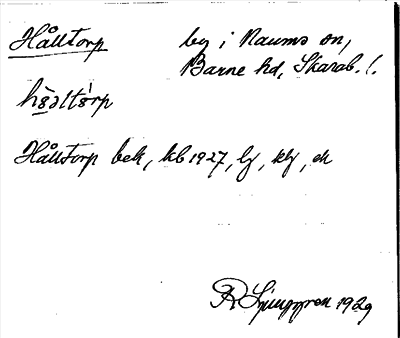 Hålltorp by i Naums sn,
Barne hd, Skarab. l.
hò̱əltòrp
Hålltorp bek, kb 1927, lj, klj, ek
R Ljunggren 1929